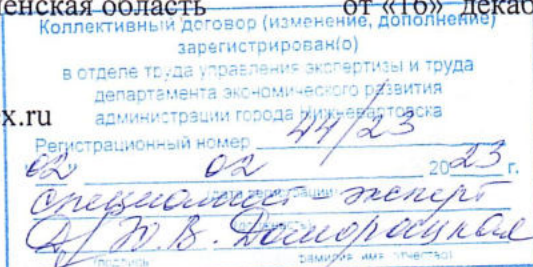 енская область от «16» декаб
Коллективный договор (изменение, дополнение)
зарегистрирован(о)
в отделе труда управления экспертизы и труда
департамента экономического развития
х.ru администрации города Нижневартовска
Регистрационный номер 44/23
"02" 02 2023 г.
(дата регистрации)
специалист-эксперт
(должность)
Ю.В. Доморацкая
(подпись) (фамилия, имя, отчество)